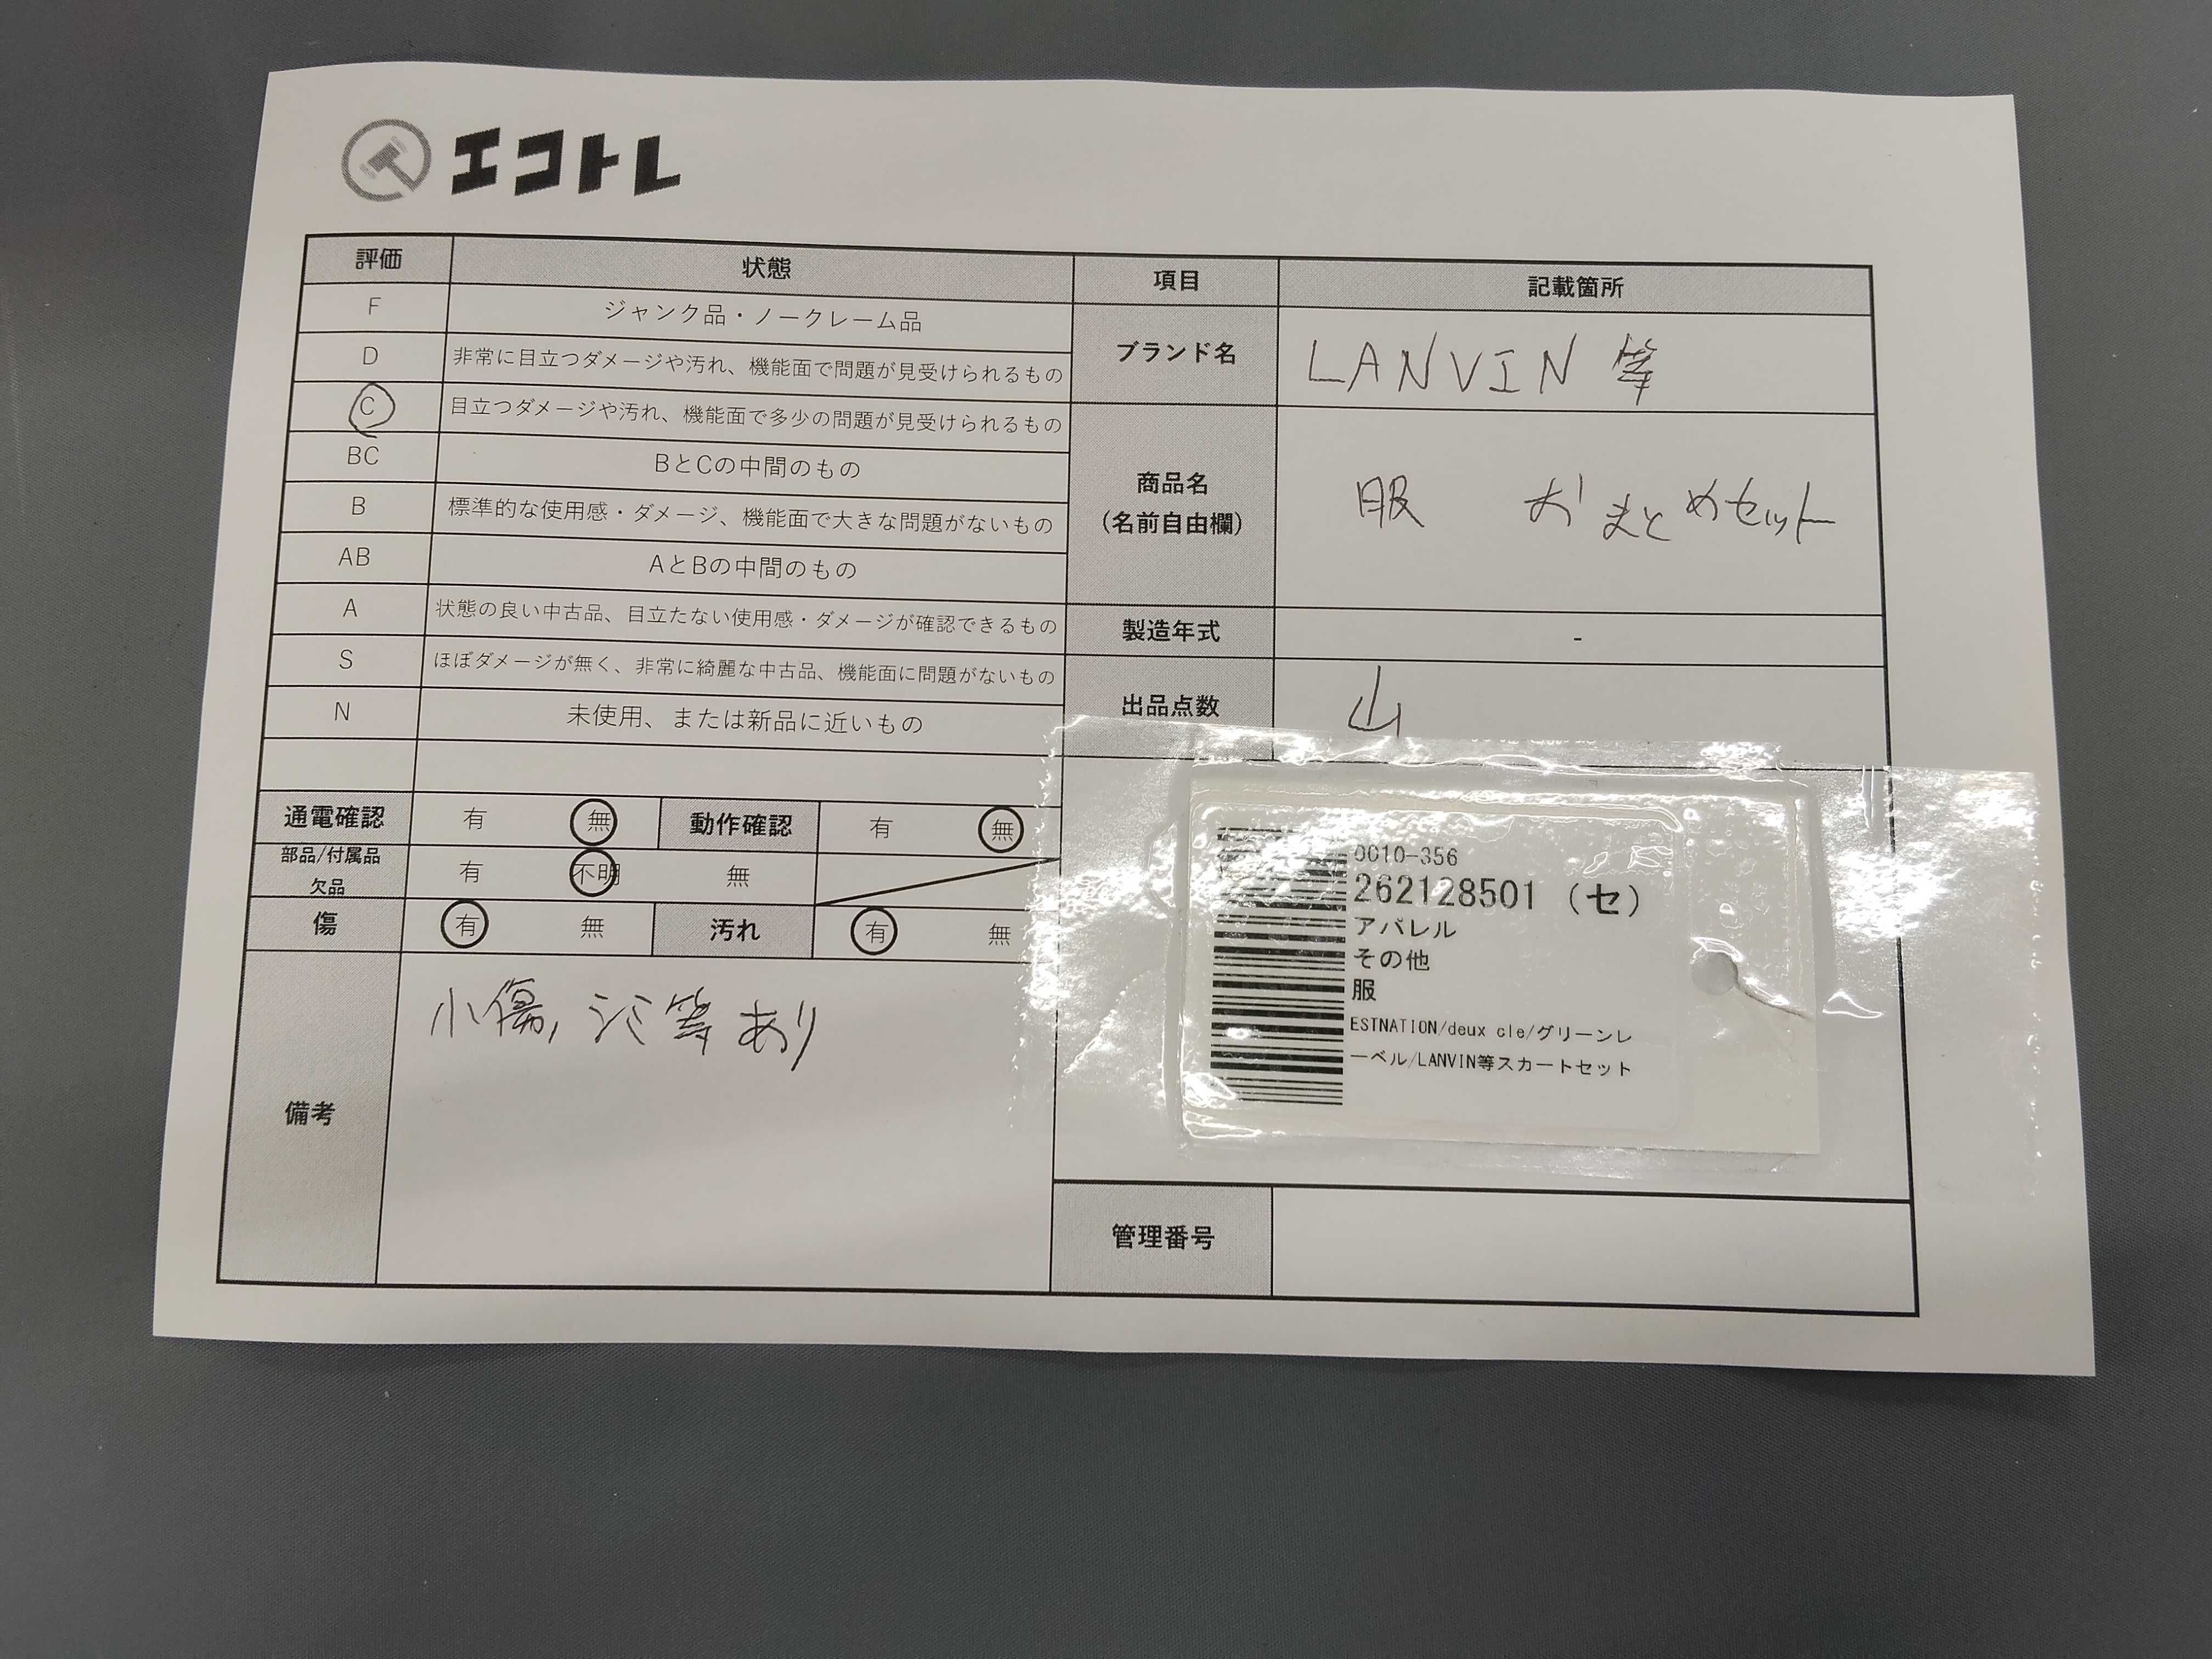 エコトレ
評価 状態 項目 記載箇所
F ジャンク品・ノークレーム品
D 非常に目立つダメージや汚れ、機能面で問題が見受けられるもの
ブランド名 LANVIN 等
C 目立つダメージや汚れ、機能面で多少の問題が見受けられるもの
BC BとCの中間のもの
商品名
(名前自由欄)
服 おまとめセット
B 標準的な使用感・ダメージ、機能面で大きな問題がないもの
AB AとBの中間のもの
A 状態の良い中古品、目立たない使用感・ダメージが確認できるもの
製造年式 -
S ほぼダメージが無く、非常に綺麗な中古品、機能面に問題がないもの
出品点数 山
N 未使用、または新品に近いもの
通電確認 有 無 動作確認 有 無
部品/付属品
欠品
有 不明 無
傷 有 無 汚れ 有 無
備考
小傷, シミ等あり
0010-356
262128501 (セ)
アパレル
その他
服
ESTNATION/deux cle/グリーンレ
ーベル/LANVIN等スカートセット
管理番号